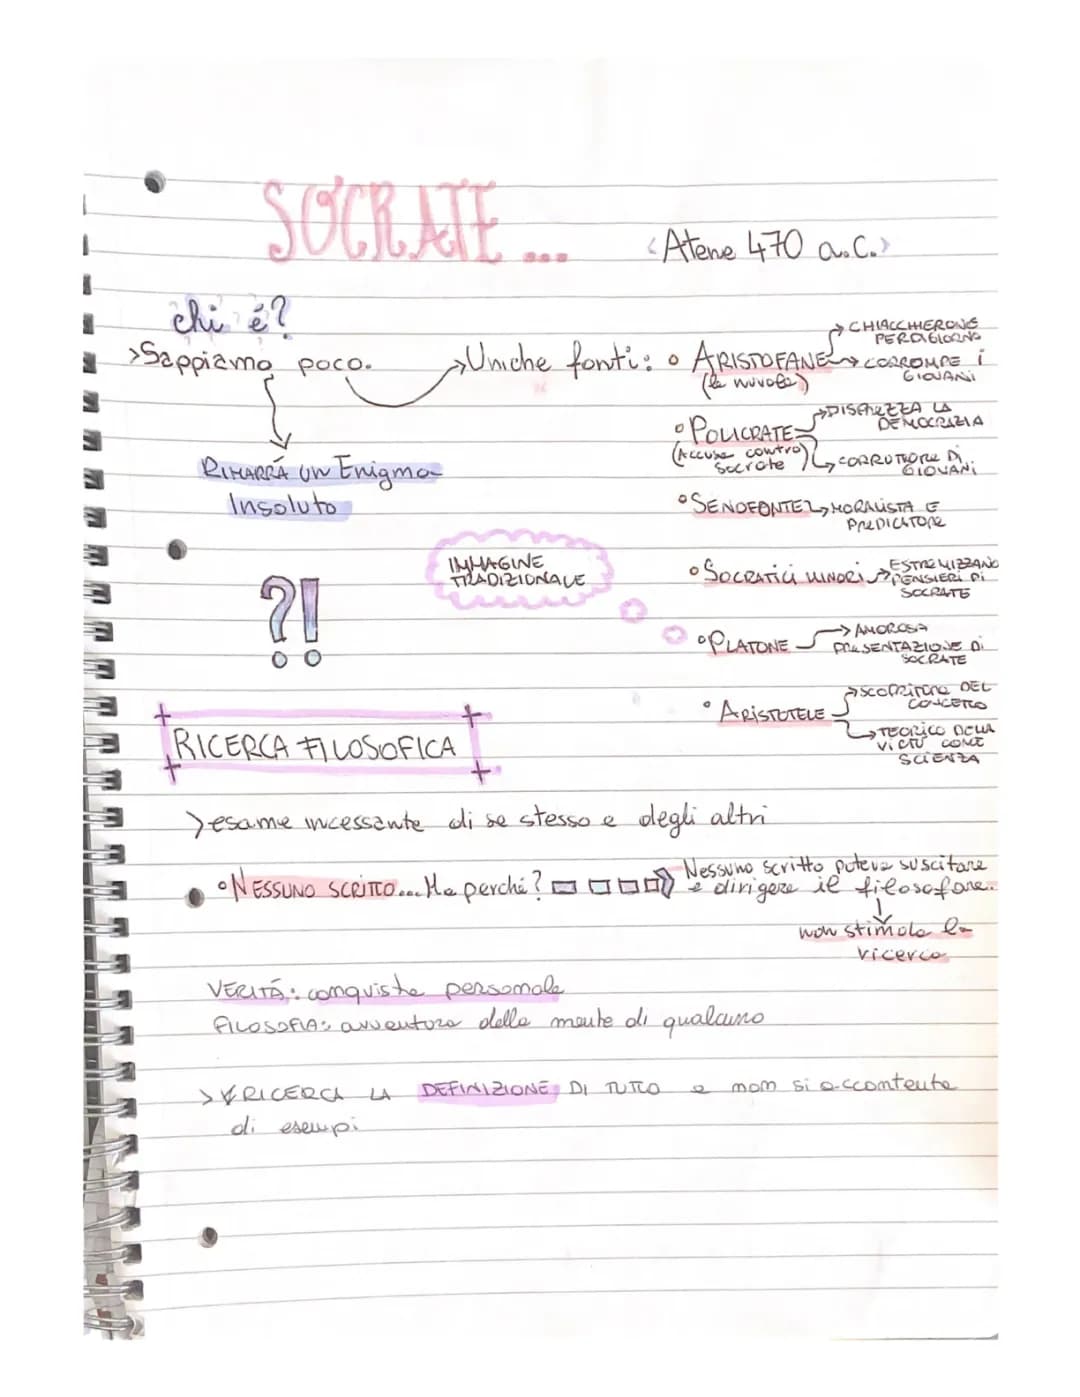 SOCRATE...
<Atene 470 a.C.>
chi é?
>Sappiamo poco. →Uniche fonti: • ARISTOFANE → CHIACCHIERONE PERDIGIORNO
→ CORROMPE i GIOVANI
(le nuvole)
RIMARRÁ UN Enigma
Insoluto
• POLICRATE → DISPREZZA LA DEMOCRAZIA
(Accusa contro Socrate) → CORRUTTORE DI GIOVANI
• SENOFONTE → MORALISTA E PREDICATORE
?!
IMMAGINE
TRADIZIONALE
• SOCRATICI MINORI → ESTREMIZZANO PENSIERI DI SOCRATE
• PLATONE → AMOROSA PRESENTAZIONE DI SOCRATE
• ARISTOTELE → SCOPRITORE DEL CONCETTO
→ TEORICO DELLA VIRTÙ COME SCIENZA
RICERCA FILOSOFICA
>esame incessante di se stesso e degli altri
• NESSUNO SCRITTO... Ma perché? Nessuno scritto poteva suscitare
e dirigere il filosofare.
↓
non stimola la
ricerca
VERITÁ: conquista personale
FILOSOFIA: avventura della mente di qualcuno
> RICERCA LA DEFINIZIONE DI TUTTO e non si accontenta
di esempi